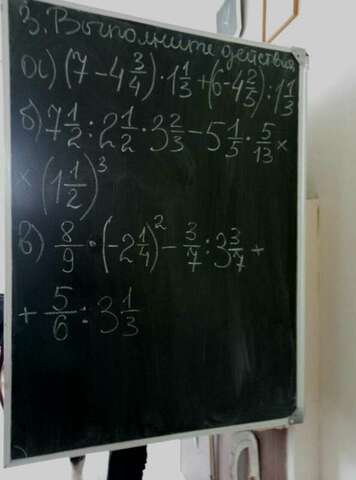 3. Выполните действия
а) (7 - 4 3/4) · 1 1/3 + (6 - 4 2/5) : 1 1/3
б) 7 1/2 : 2 1/2 · 3 2/3 - 5 1/5 · 5/13 ×
× (1 1/2)³
в) 8/9 · (-2 1/4)² - 3/7 : 3 3/7 +
+ 5/6 : 3 1/3